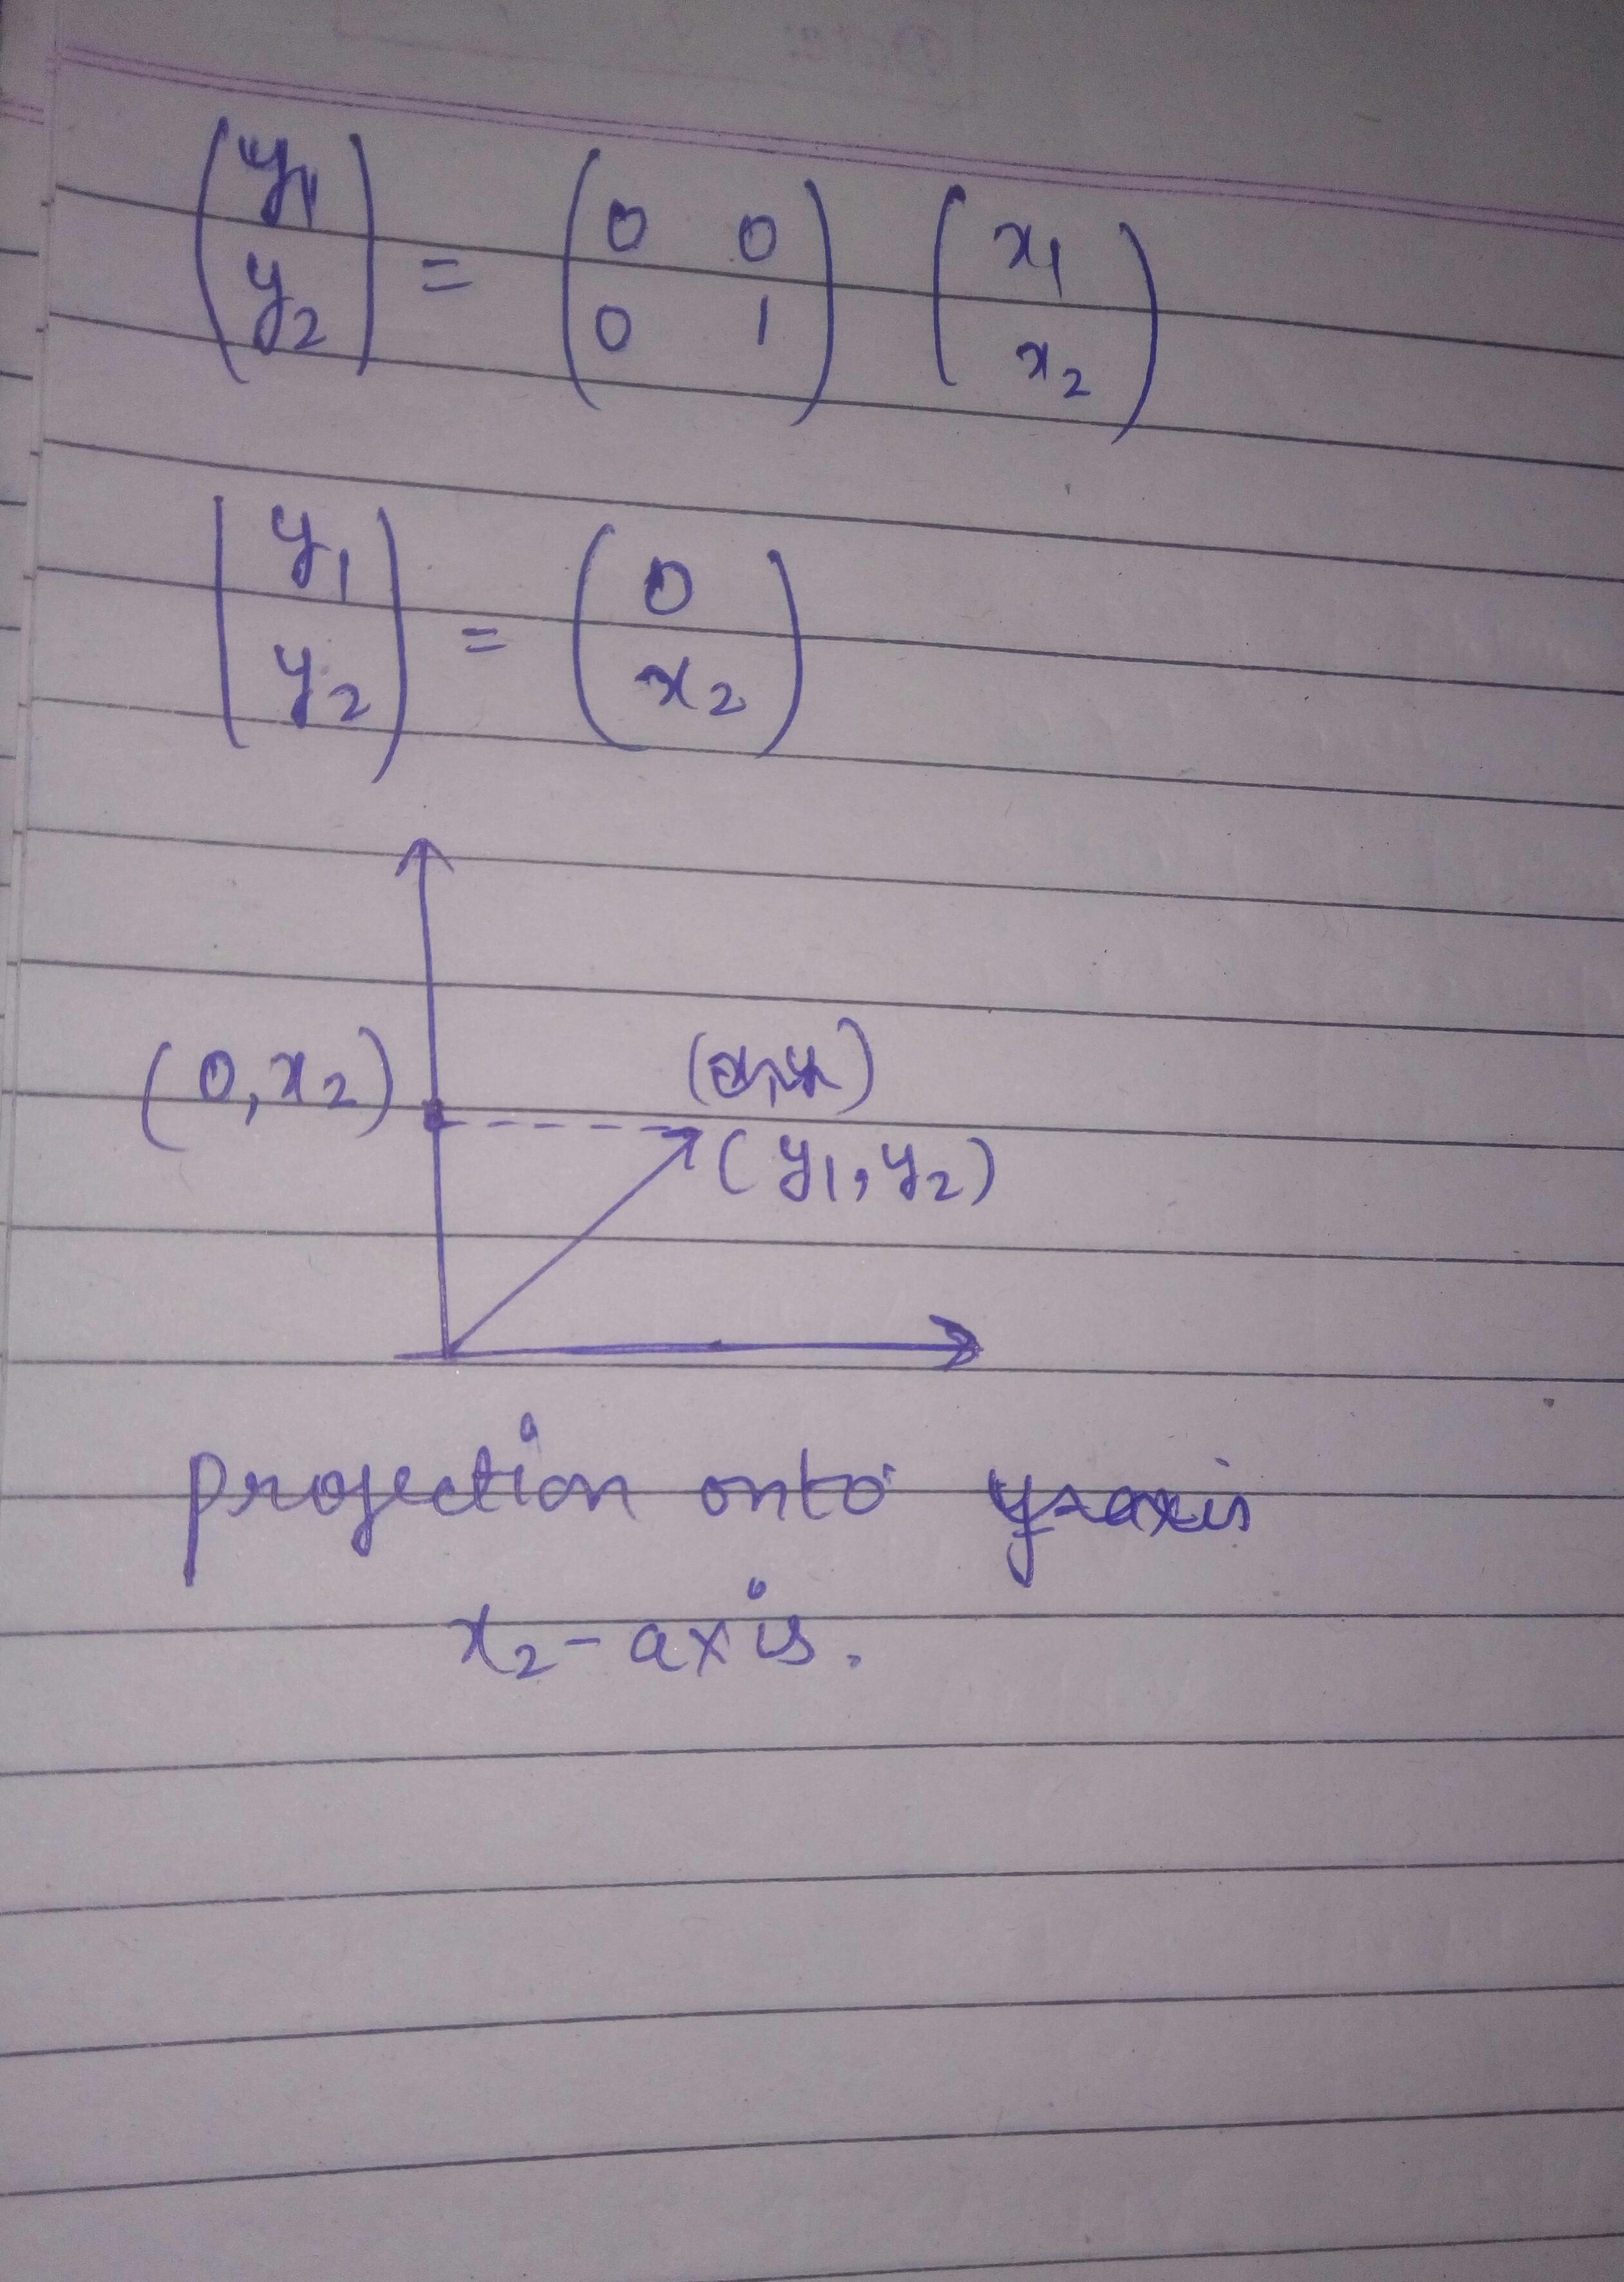 (y1
y2) = (0 0
0 1) (x1
x2)
(y1
y2) = (0
x2)
(0, x2)
(y1, y2)
projection onto y-axis
x2-axis.